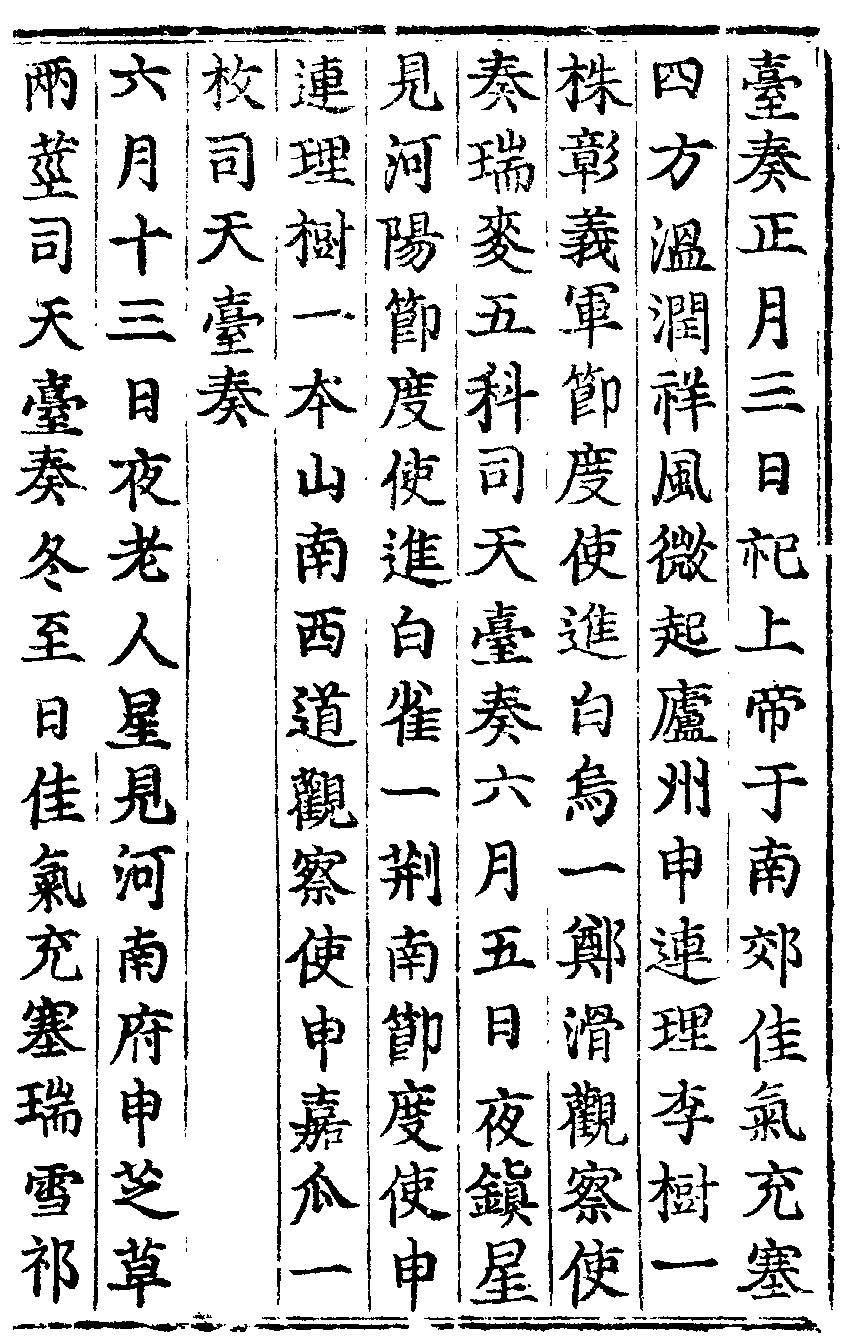 臺奏正月三日祀上帝于南郊佳氣充塞
四方溫潤祥風微起廬州申連理李樹一
株彰義軍節度使進白烏一鄭滑觀察使
奏瑞麥五科司天臺奏六月五日夜鎭星
見河陽節度使進白雀一荆南節度使申
連理樹一本山南西道觀察使申嘉瓜一
枚司天臺奏
六月十三日夜老人星見河南府申芝草
兩莖司天臺奏冬至日佳氣充塞瑞雪祁